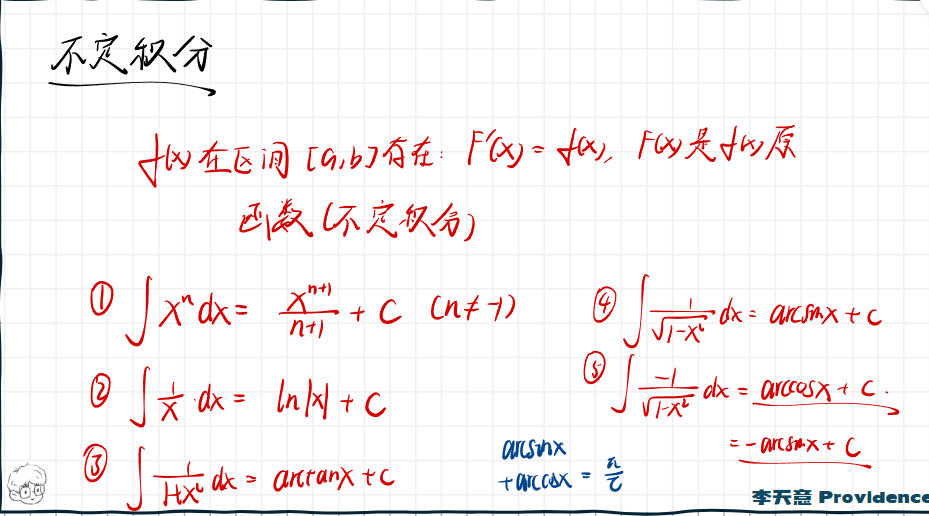 不定积分
f(x)在区间[a,b]存在: F'(x) = f(x), F(x)是f(x)原
函数(不定积分)
① ∫ xⁿ dx = xⁿ⁺¹/(n+1) + C (n ≠ -1)
② ∫ 1/x · dx = ln|x| + C
③ ∫ 1/(1+x²) dx = arctanx + C
④ ∫ 1/√(1-x²) dx = arcsinx + C
⑤ ∫ -1/√(1-x²) dx = arccosx + C.
= -arcsinx + C
arcsinx
+arccosx = π/2
李天意 Providence